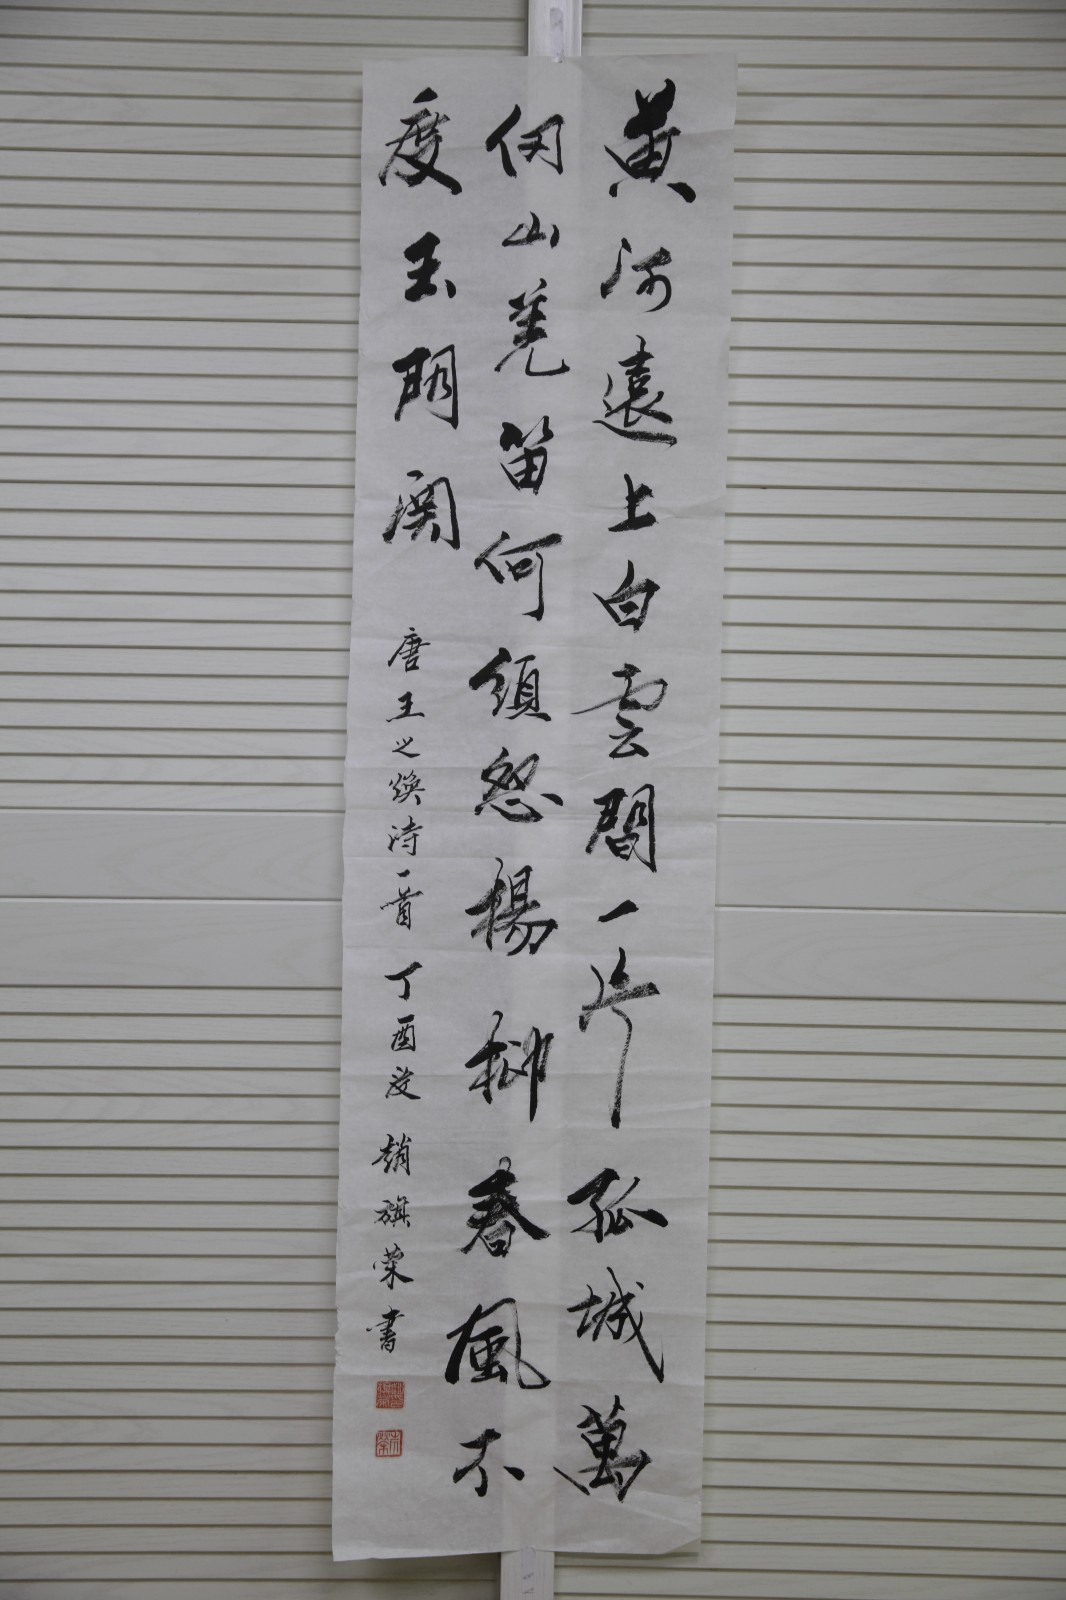 黄河遠上白雲間一片孤城萬
仞山羌笛何須怨楊柳春風不
度玉門関
唐王之焕詩一首 丁酉 趙旗榮書